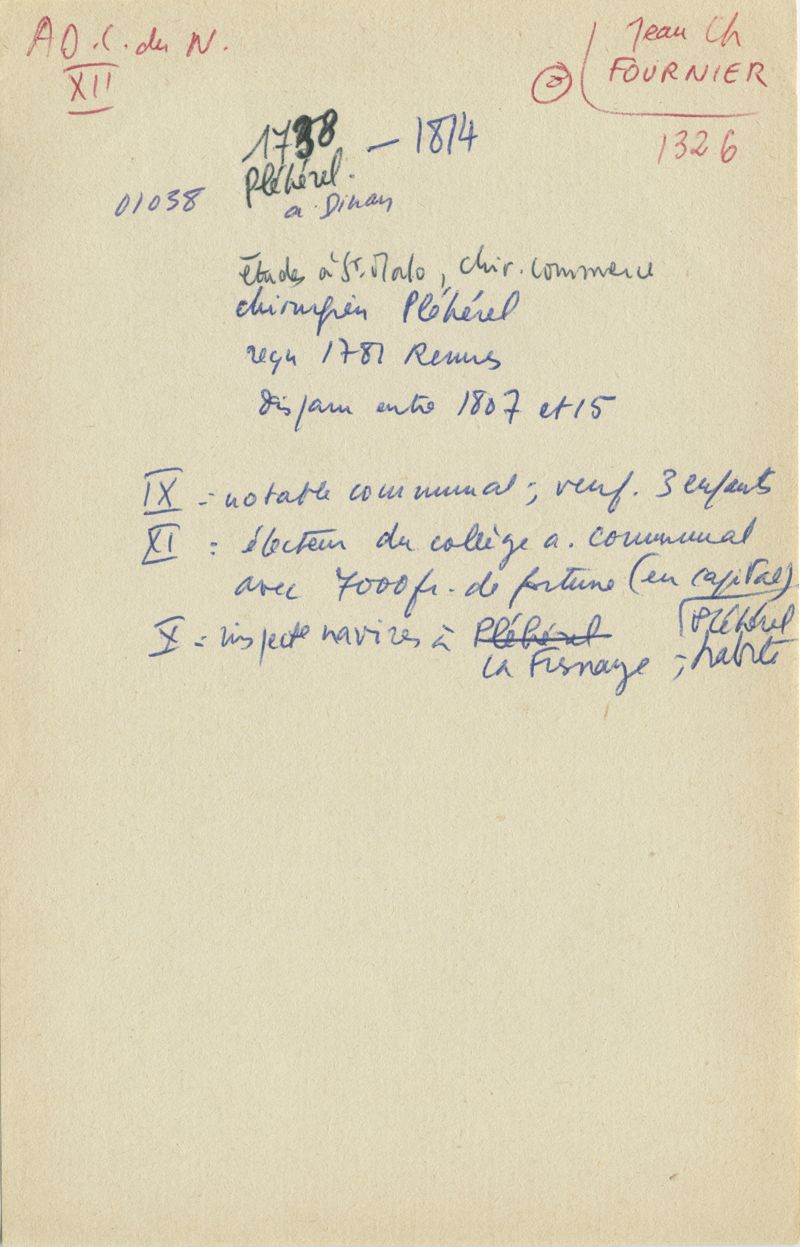 AD.C. du N.
XII
Jean Ch
FOURNIER
1326
1738 — 1814
Pléhérel.
01038
a Dinan
études à St. Malo, chir. commerce
chirurgien Pléhérel
reçu 1781 Rennes
disparu entre 1807 et 15
IX = notable communal; veuf. 3 enfants
XI : électeur du collège a. communal
avec 7000fr. de fortune (en capital)
X = inspecte navires à Pléhérel
la Fresnaye ; habite
Pléhérel